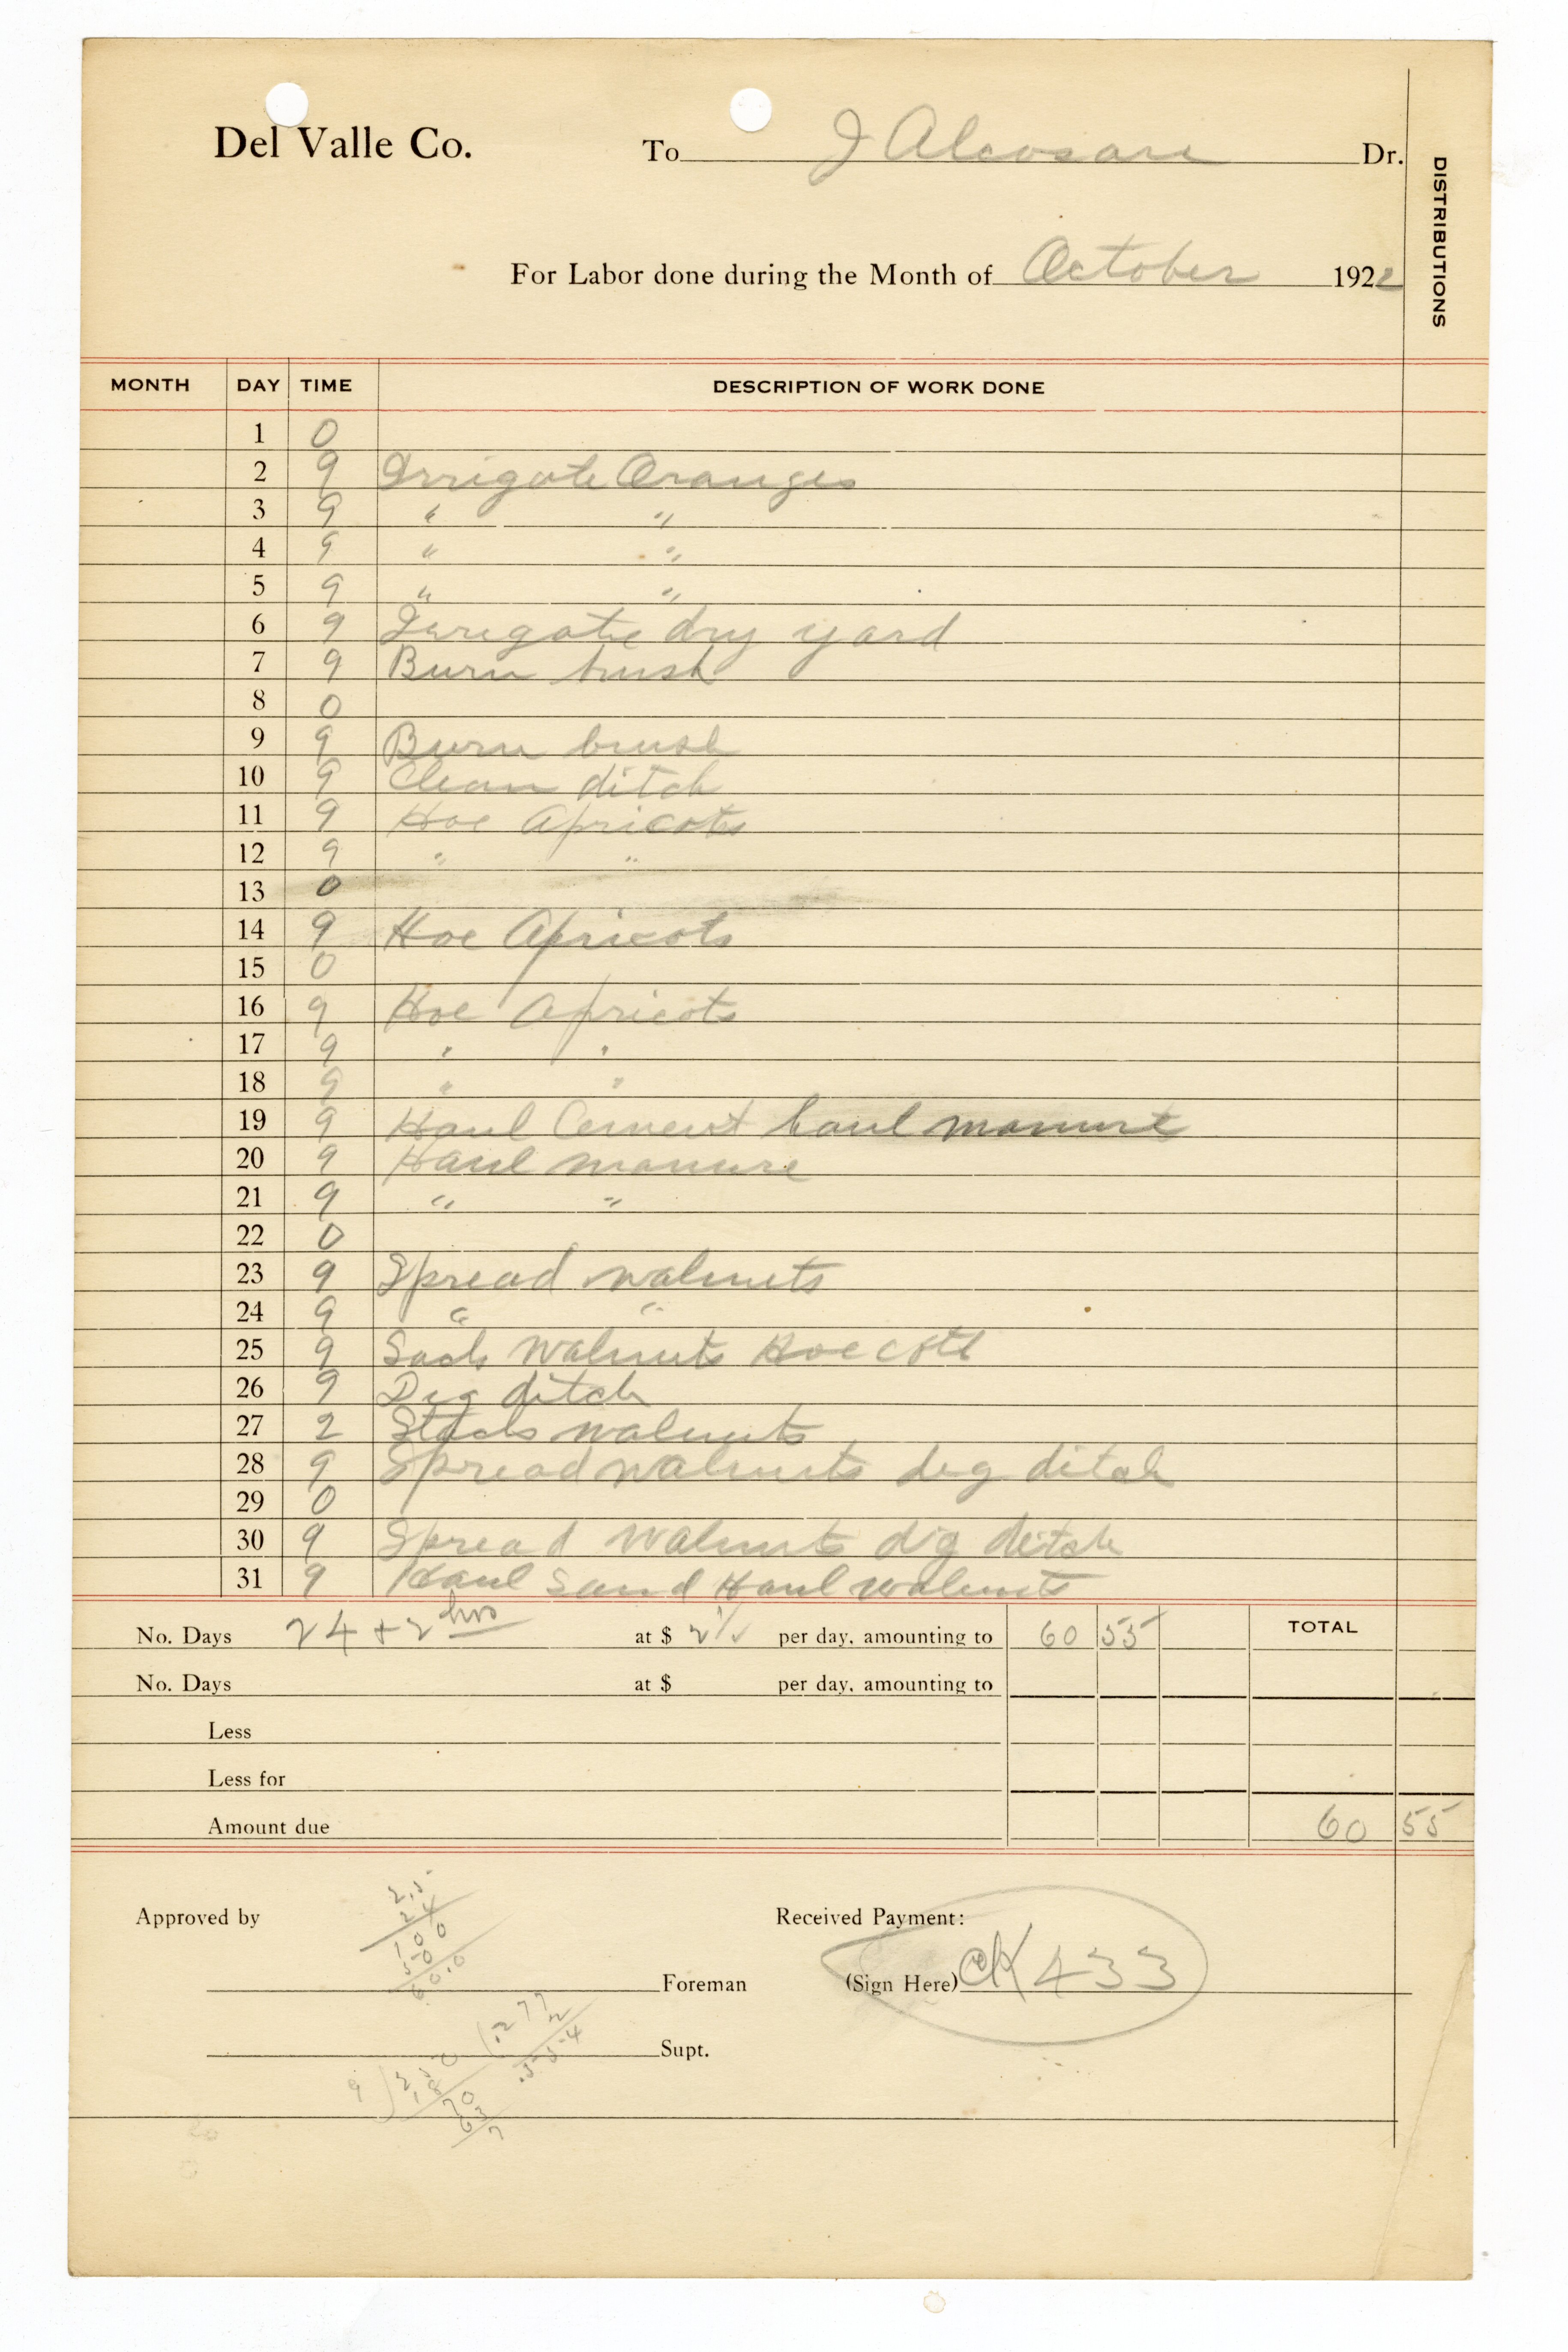 Del Valle Co. To J Alcosare Dr.
DISTRIBUTIONS
For Labor done during the Month of October 1922
MONTH DAY TIME DESCRIPTION OF WORK DONE
1 0
2 9 Irrigate Oranges
3 9 " "
4 9 " "
5 9 " "
6 9 Irrigate dry yard
7 9 Burn brush
8 0
9 9 Burn brush
10 9 Clean ditch
11 9 Hoe Apricots
12 9 " "
13 0
14 9 Hoe Apricots
15 0
16 9 Hoe Apricots
17 9 " "
18 9 " "
19 9 Haul Cement haul manure
20 9 Haul manure
21 9 " "
22 0
23 9 Spread walnuts
24 9 " "
25 9 Sack Walnuts Hoe
26 9 Dig ditch
27 2 Stack walnuts
28 9 Spread walnuts dig ditch
29 0
30 9 Spread Walnuts dig ditch
31 9 Haul Sand Haul walnuts
No. Days 24 + 2 hrs at $ 2 1/2 per day, amounting to 60 55 TOTAL
No. Days at $ per day, amounting to
Less
Less for
Amount due 60 55
Approved by Received Payment:
2.5
24
100
50
60.0
Foreman (Sign Here) CK 433
Supt.
9) 2.50 (.277
18
70
63
7
2
.554